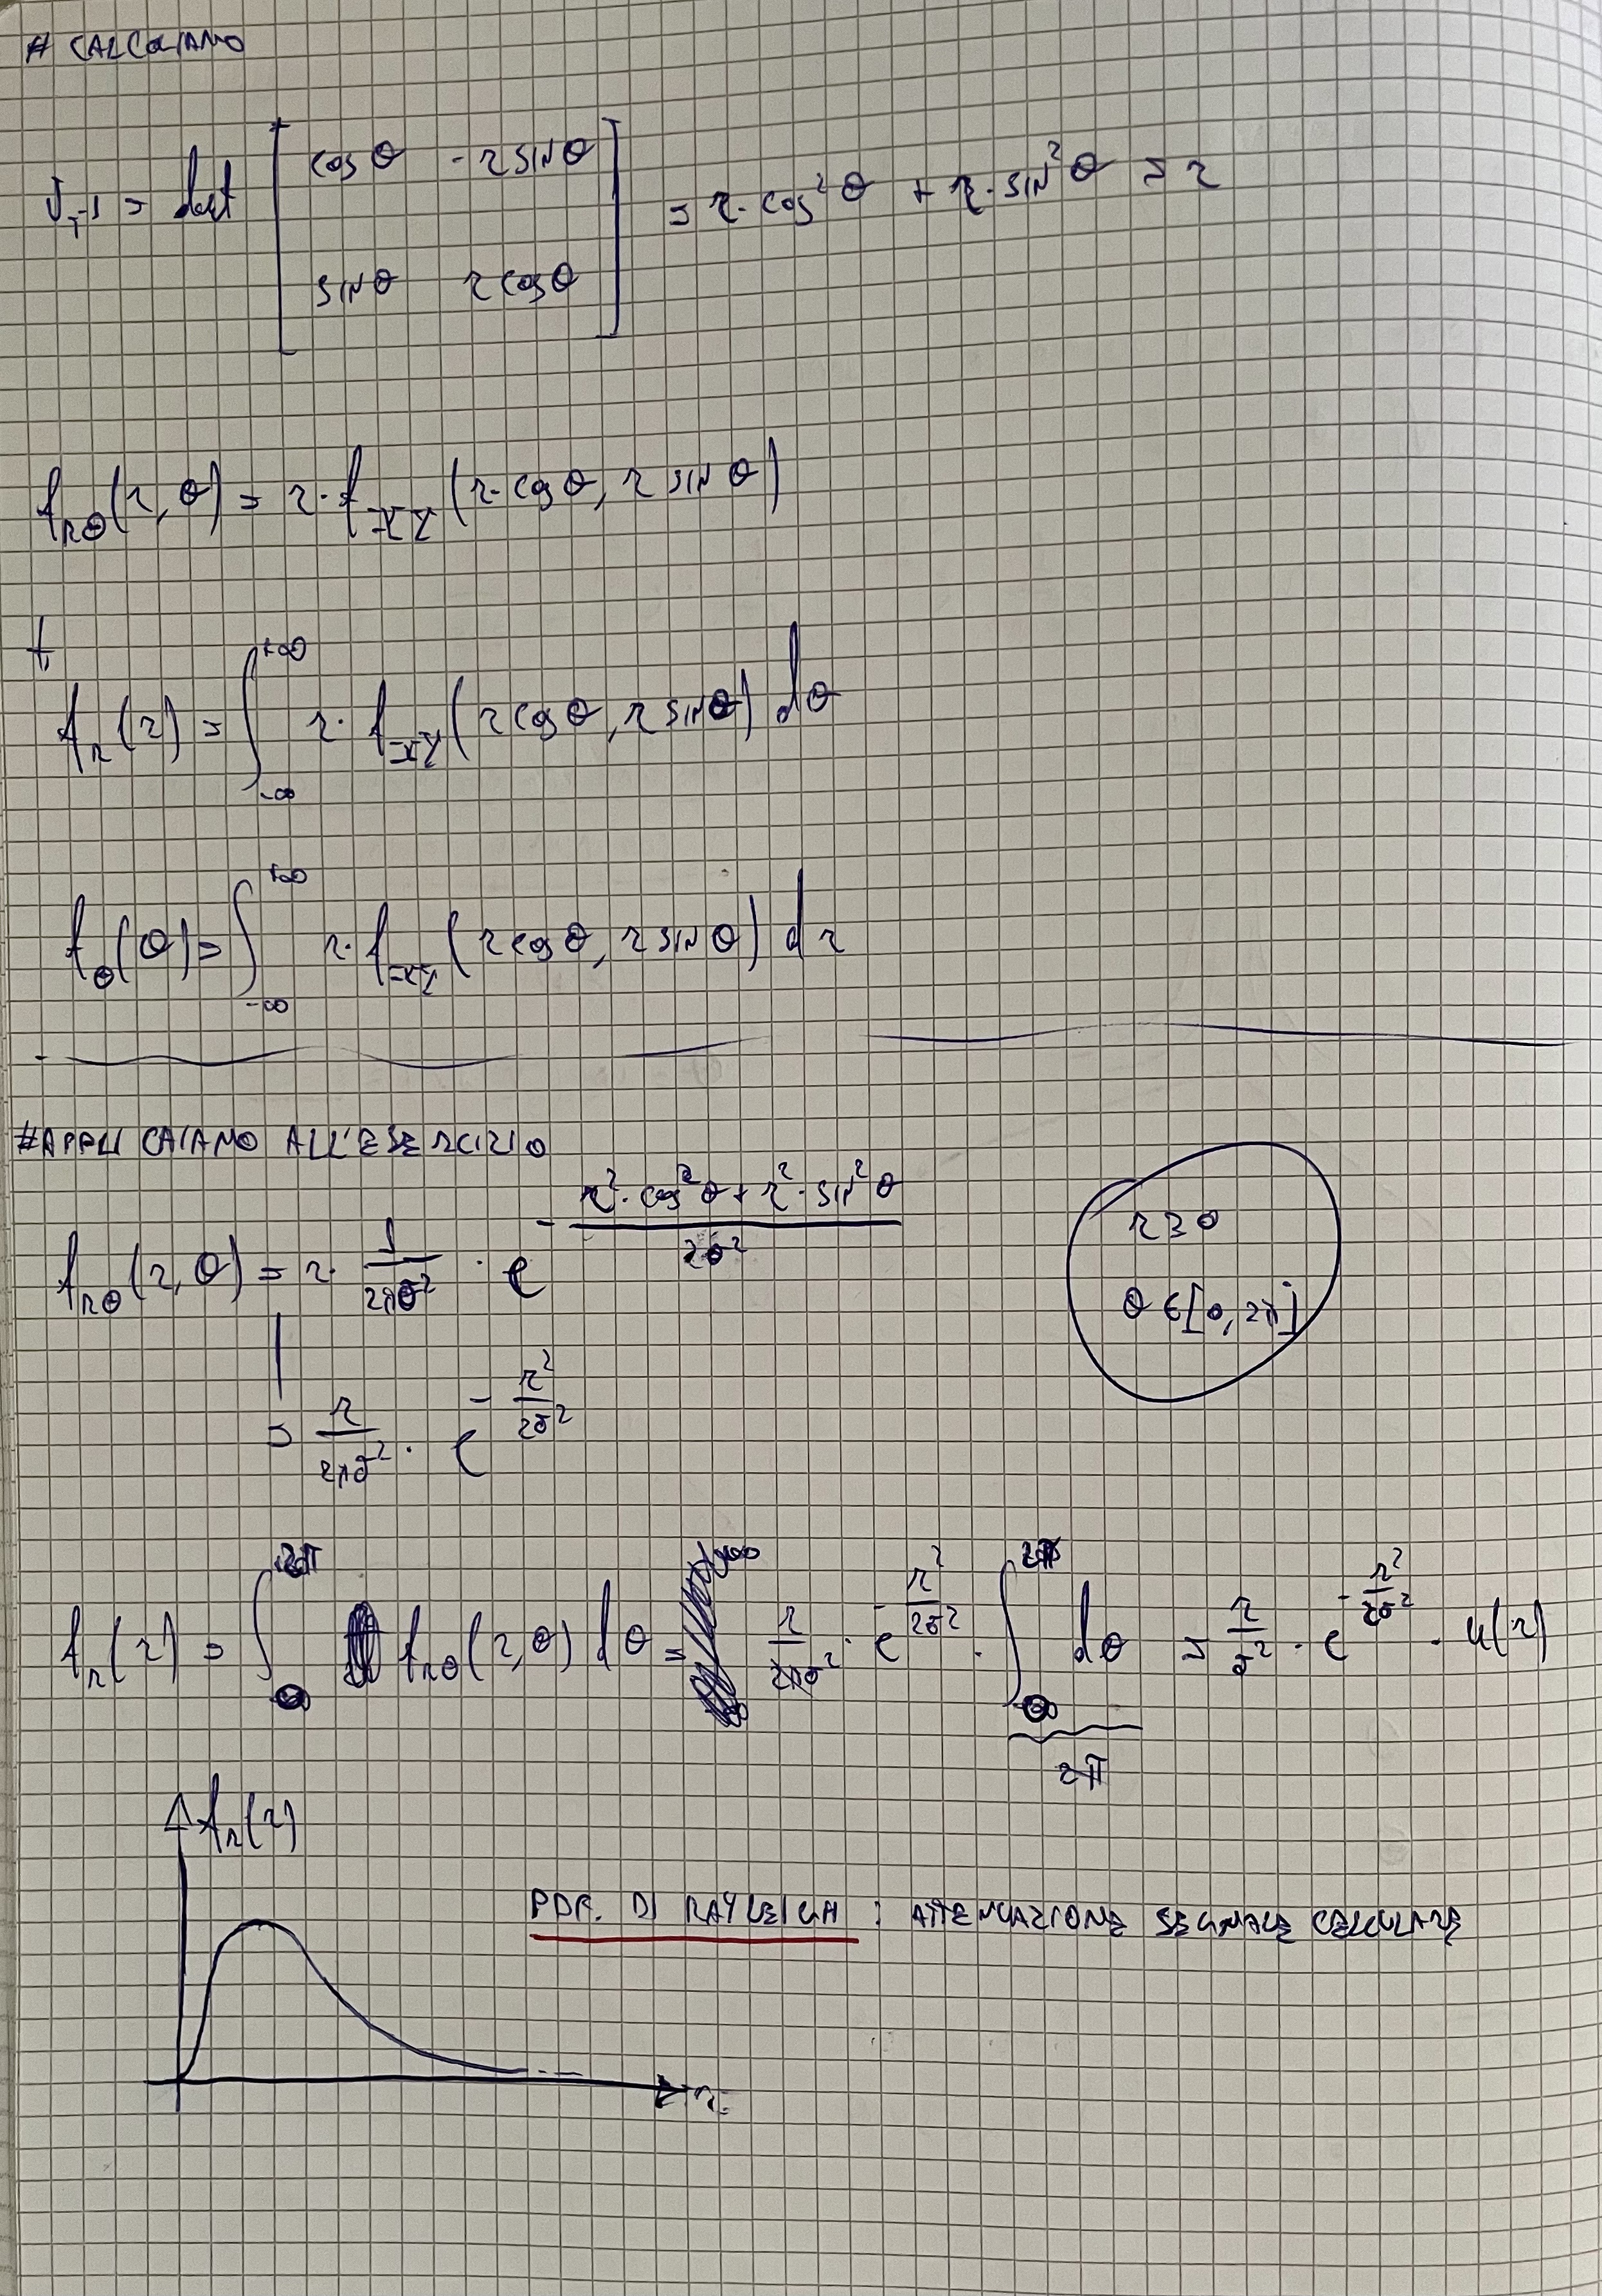 # CALCOLIAMO
J_T-1 = det [ cos θ  - r SIN θ
SIN θ  r cos θ ] = r · cos² θ + r · SIN² θ = r
f_RΘ (r, θ) = r · f_XY (r · cos θ, r SIN θ)
f_R (r) = ∫_{-∞}^{+∞} r · f_XY (r cos θ, r SIN θ) dθ
f_Θ (θ) = ∫_{-∞}^{+∞} r · f_XY (r cos θ, r SIN θ) dr
# APPLICAIAMO ALL'ESERCIZIO
f_RΘ (r, θ) = r · 1/(2πσ²) · e^{- (r² · cos² θ + r² · SIN² θ)/(2σ²)}
r ≥ 0
θ ∈ [0, 2π]
= r/(2πσ²) · e^{- r²/(2σ²)}
f_R (r) = ∫_0^{2π} f_RΘ (r, θ) dθ = r/(2πσ²) · e^{- r²/(2σ²)} · ∫_0^{2π} dθ = r/σ² · e^{- r²/(2σ²)} · u(r)
2π
f_R (r)
PDF. DI RAYLEIGH : ATTENUAZIONE SEGNALE CELLULARE
r